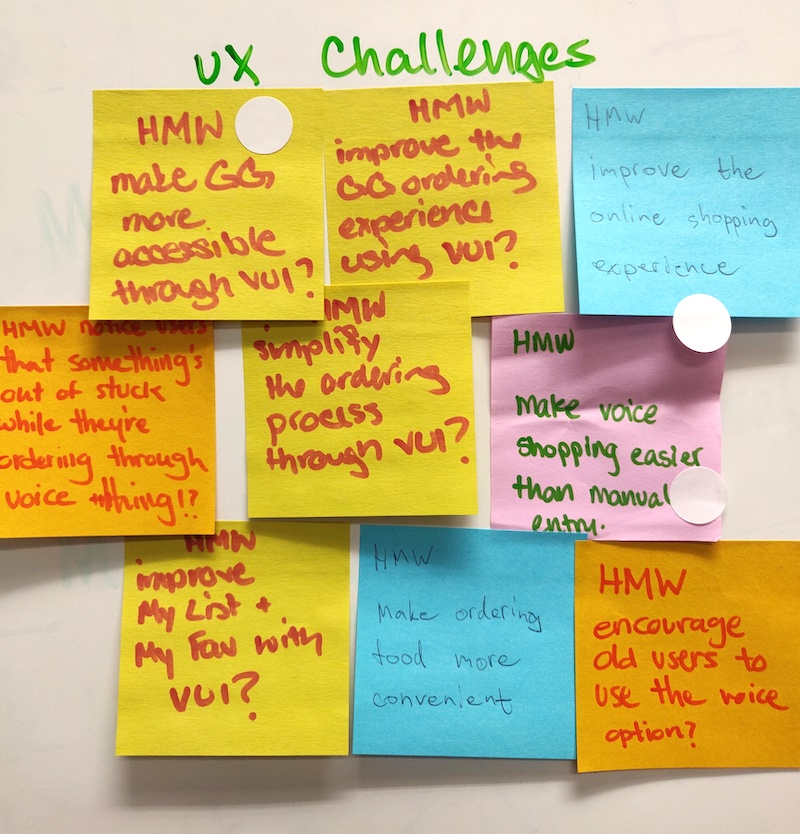 UX Challenges
HMW
make GG
more
accessible
through VUI?
HMW
improve the
GG ordering
experience
using VUI?
HMW
improve the
online shopping
experience
HMW notice users
that something's
out of stuck
while they're
ordering through
voice thing!?
HMW
simplify
the ordering
process
through VUI?
HMW
Make voice
shopping easier
than manual
entry.
HMW
improve
My List +
My Fav with
VUI?
HMW
Make ordering
food more
convenient
HMW
encourage
old users to
use the voice
option?